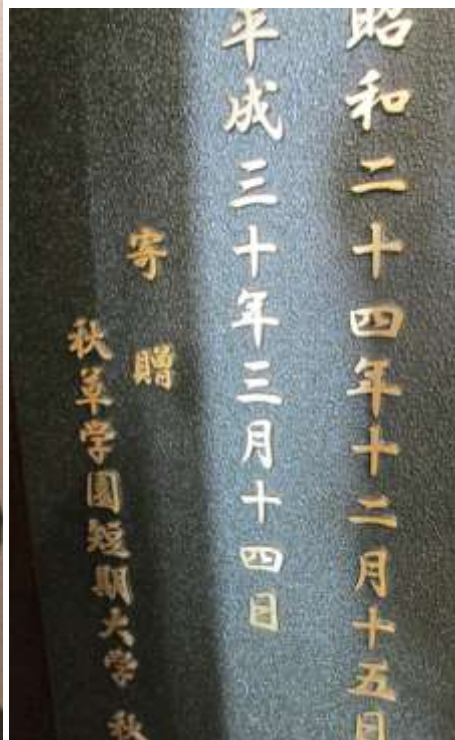 昭和二十四年十二月十五日
平成三十年三月十四日
寄贈
秋草学園短期大学 秋